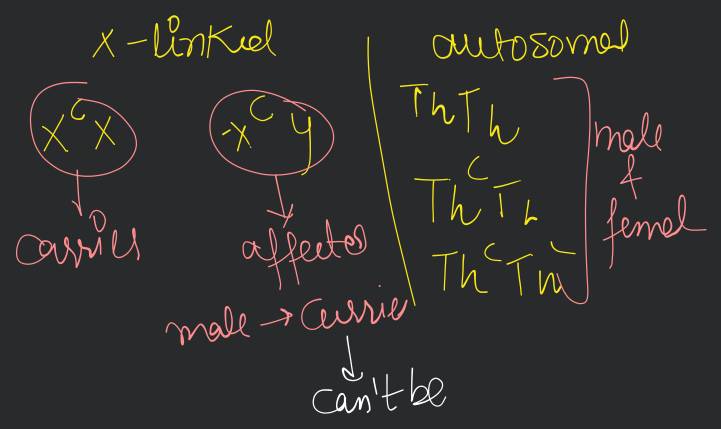 X-linked
X^C X
X^C y
carries
affected
male → Carrie
can't be
autosomal
ThTh
Th^C Th
Th^C Th^C
male
&
femal